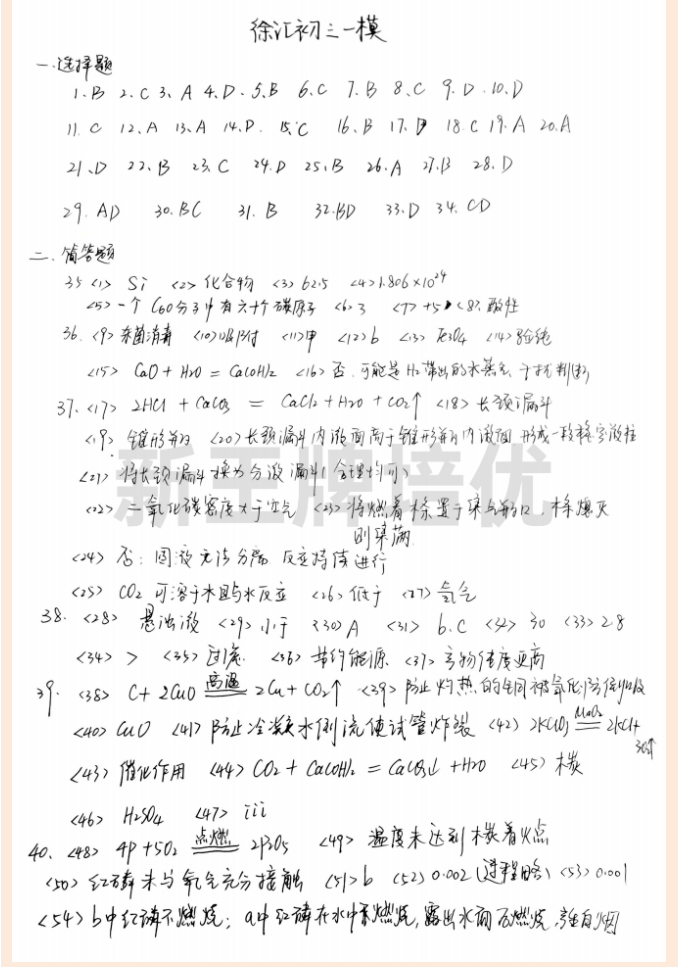 徐汇初三一模
一.选择题
1、B 2、C 3、A 4、D. 5、B 6、C 7、B 8、C 9、D. 10、D
11. C 12、A 13、A 14、D. 15、C 16、B 17、D 18. C 19. A 20.A
21、D 22、B 23、C 24、D 25、B 26、A 27、B 28、D
29. AD 30. BC 31. B 32. BD 33. D 34. CD
二、简答题
35 <1> Si <2> 化合物 <3> 62.5 <4> 1.806×10²⁴
<5> 一个C60分子中有六十个碳原子 <6> 3 <7> +5 <8> 酸性
36. <9> 杀菌消毒 <10> 吸附 <11> 甲 <12> b <13> Fe3O4 <14> 验纯
<15> CaO + H2O = Ca(OH)2 <16> 否.可能是H2带出的水蒸气干扰判断
37. <17> 2HCl + CaCO3 = CaCl2 + H2O + CO2↑ <18> 长颈漏斗
<19> 锥形瓶 <20> 长颈漏斗内液面高于锥形瓶内液面 形成一段稳定液柱
<21> 将长颈漏斗换为分液漏斗(合理均可)
<22> 二氧化碳密度大于空气 <23> 将燃着木条置于集气瓶口,木条熄灭
则集满
<24> 否;固液无法分离 反应持续进行
<25> CO2 可溶于水且与水反应 <26> 低于 <27> 氢气
38. <28> 悬浊液 <29> 小于 <30> A <31> b.C <32> 30 <33> 28
<34> > <35> 过滤 <36> 节约能源 <37> 产物纯度更高
39. <38> C + 2CuO 高温 2Cu + CO2↑ <39> 防止灼热的铜被氧化
<40> CuO <41> 防止冷凝水倒流使试管炸裂 <42> 2KClO3 MnO2 2KCl+
3O2↑
<43> 催化作用 <44> CO2 + Ca(OH)2 = CaCO3↓ + H2O <45> 木炭
<46> H2SO4 <47> iii
40. <48> 4P + 5O2 点燃 2P2O5 <49> 温度未达到木炭着火点
<50> 红磷未与氧气充分接触 <51> b <52> 0.002 (过程略) <53> 0.001
<54> b中红磷不燃烧;a中红磷在水中不燃烧,露出水面后燃烧,产生白烟
新王牌培优